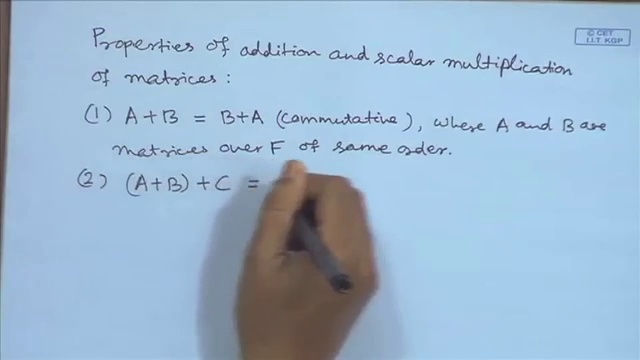 © CET
I.I.T. KGP
Properties of addition and scalar multiplication
of matrices :
(1) A+B = B+A (commutative), where A and B are
matrices over F of same order.
(2) (A+B)+C =